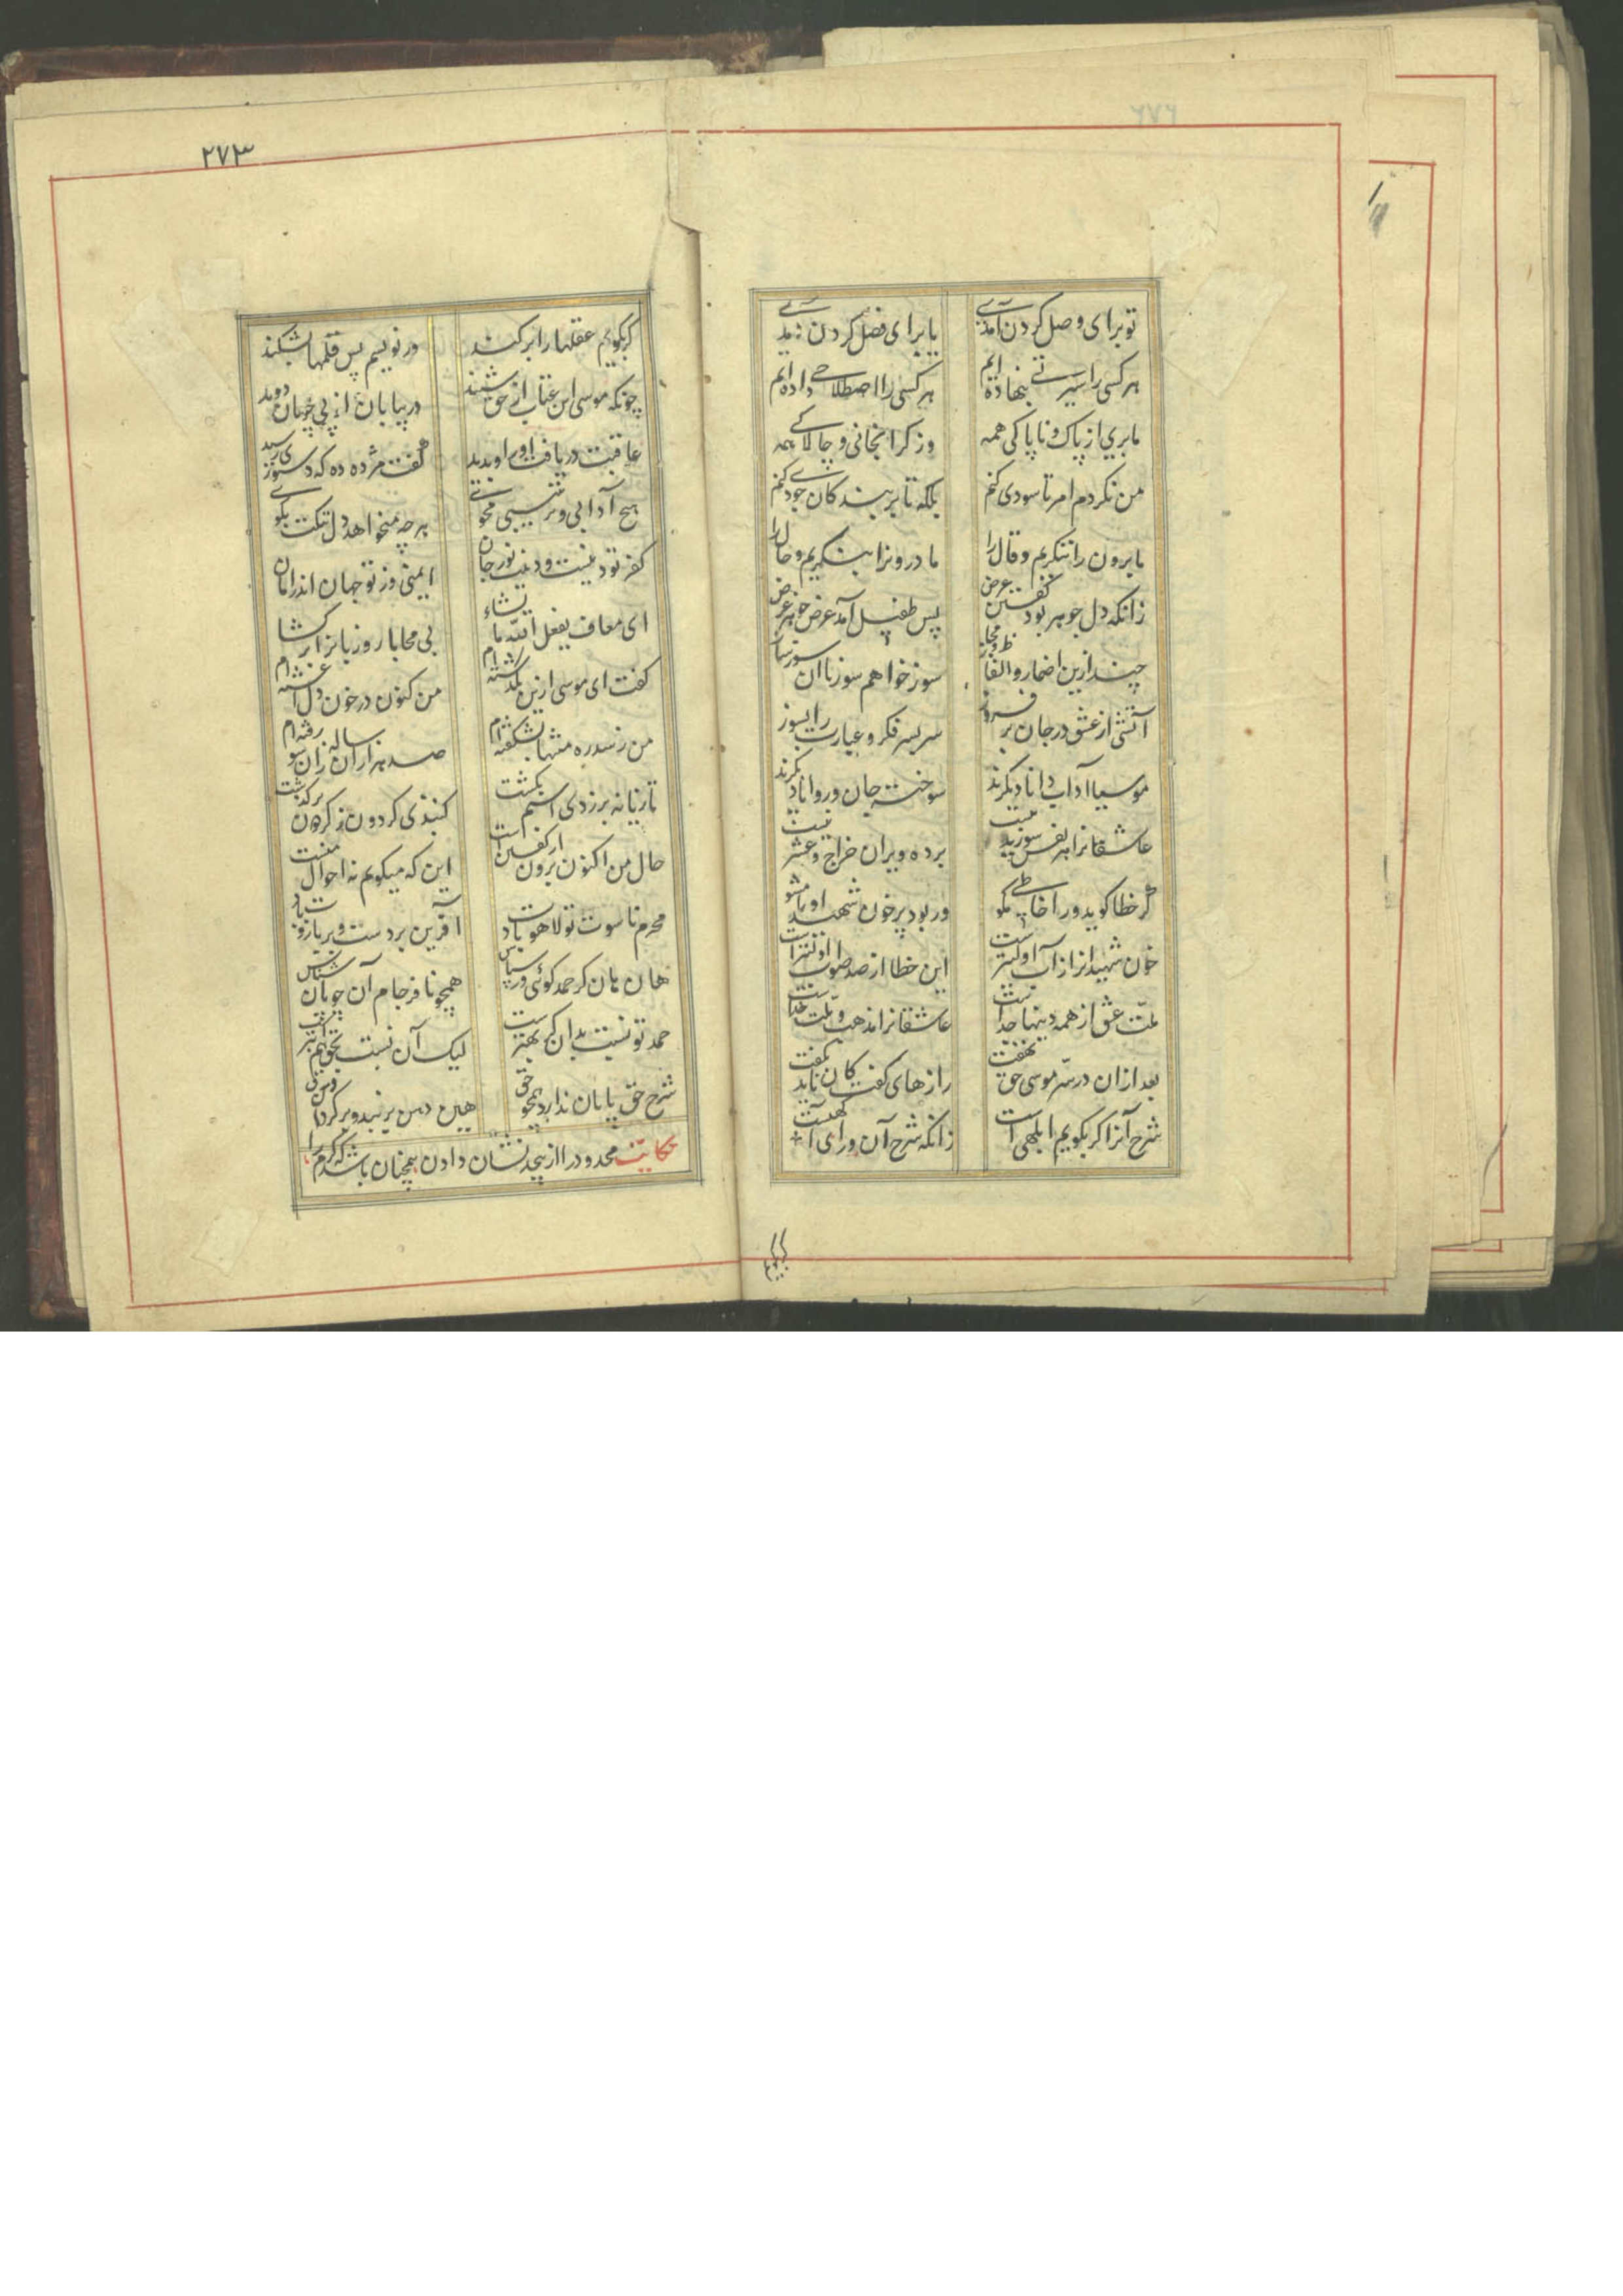 تو برای وصل کردن آمدی
یا برای فصل کردن آمدی
هر کسی را سیرتی بنهاده ایم
هر کسی را اصطلاحی داده ایم
ما بری از پاک و ناپاکی همه
وز گرانجانی و چالاکی همه
من نکردم امر تا سودی کنم
بلکه تا بر بندکان جودی کنم
ما برون را ننکریم و قال را
ما درونرا بنکریم و حال را
زانکه دل جوهر بود گفتن عرض
پس طفیل آمد عرض جوهر غرض
چند ازین اضمار و الفاظ و مجاز
سوز خواهم سوز با آن سوز ساز
آتشی از عشق در جان بر فروز
سر بسر فکر و عبارت را بسوز
موسیا آداب دانان دیکرند
سوخته جان و روانان دیکرند
عاشقانرا هر نفس سوزیدنیست
بر ده ویران خراج و عشر نیست
گر خطا کوید ورا خاطی مکو
ور بود پر خون شهید او را مشو
خون شهیدانرا ز آب اولیتر است
این خطا از صد صواب اولیتر است
ملت عشق از همه دینها جداست
عاشقانرا مذهب و ملت خداست
بعد ازان در سر موسی حق نهفت
رازهای کفت کان ناید بکفت
شرح آنرا کر بکویم ابلهی است
زانکه شرح آن ورای آکهیست
کربکویم
۲۷۳
کر بکویم عقلها را بر کند
ور نویسم بس قلمها بشکند
چونکه موسی این عتاب از حق شنید
در بیابان از پی چوپان دوید
عاقبت دریافت او را و بدید
کفت مژده ده که دستوری رسید
هیچ آدابی و ترتیبی مجوی
هر چه میخواهد دل تنکت بکوی
کفر تو دینست و دینت نور جان
ایمنی وز تو جهان اندر امان
ای معاف یفعل الله ما یشاء
بی محابا رو زبانرا بر کشا
کفت ای موسی ازین بکذشته ام
من کنون در خون دل آغشته ام
من ز سدره منتها بشکفته ام
صد هزاران ساله زان سو رفته ام
تازیانه بر زدی اسبم بکشت
کنبدی کرد و ز کردون بر کذشت
حال من اکنون برون از کفتن است
این که میکویم نه احوال منست
محرم ناسوت تو لاهوت باد
آفرین بر دست و بر بازوت باد
هان هان کر حمد کوئی ور سپاس
همچو نافرجام آن چوپان شناس
حمد تو نسبت بدان کر بهتر است
لیک آن نسبت بحق هم ابتر است
شرح حق پایان ندارد همچو حق
هین دهن بر بند و بر کردان ورق
حکایت محدود را از بیحد نشان دادن همچنان باشد که کرم را